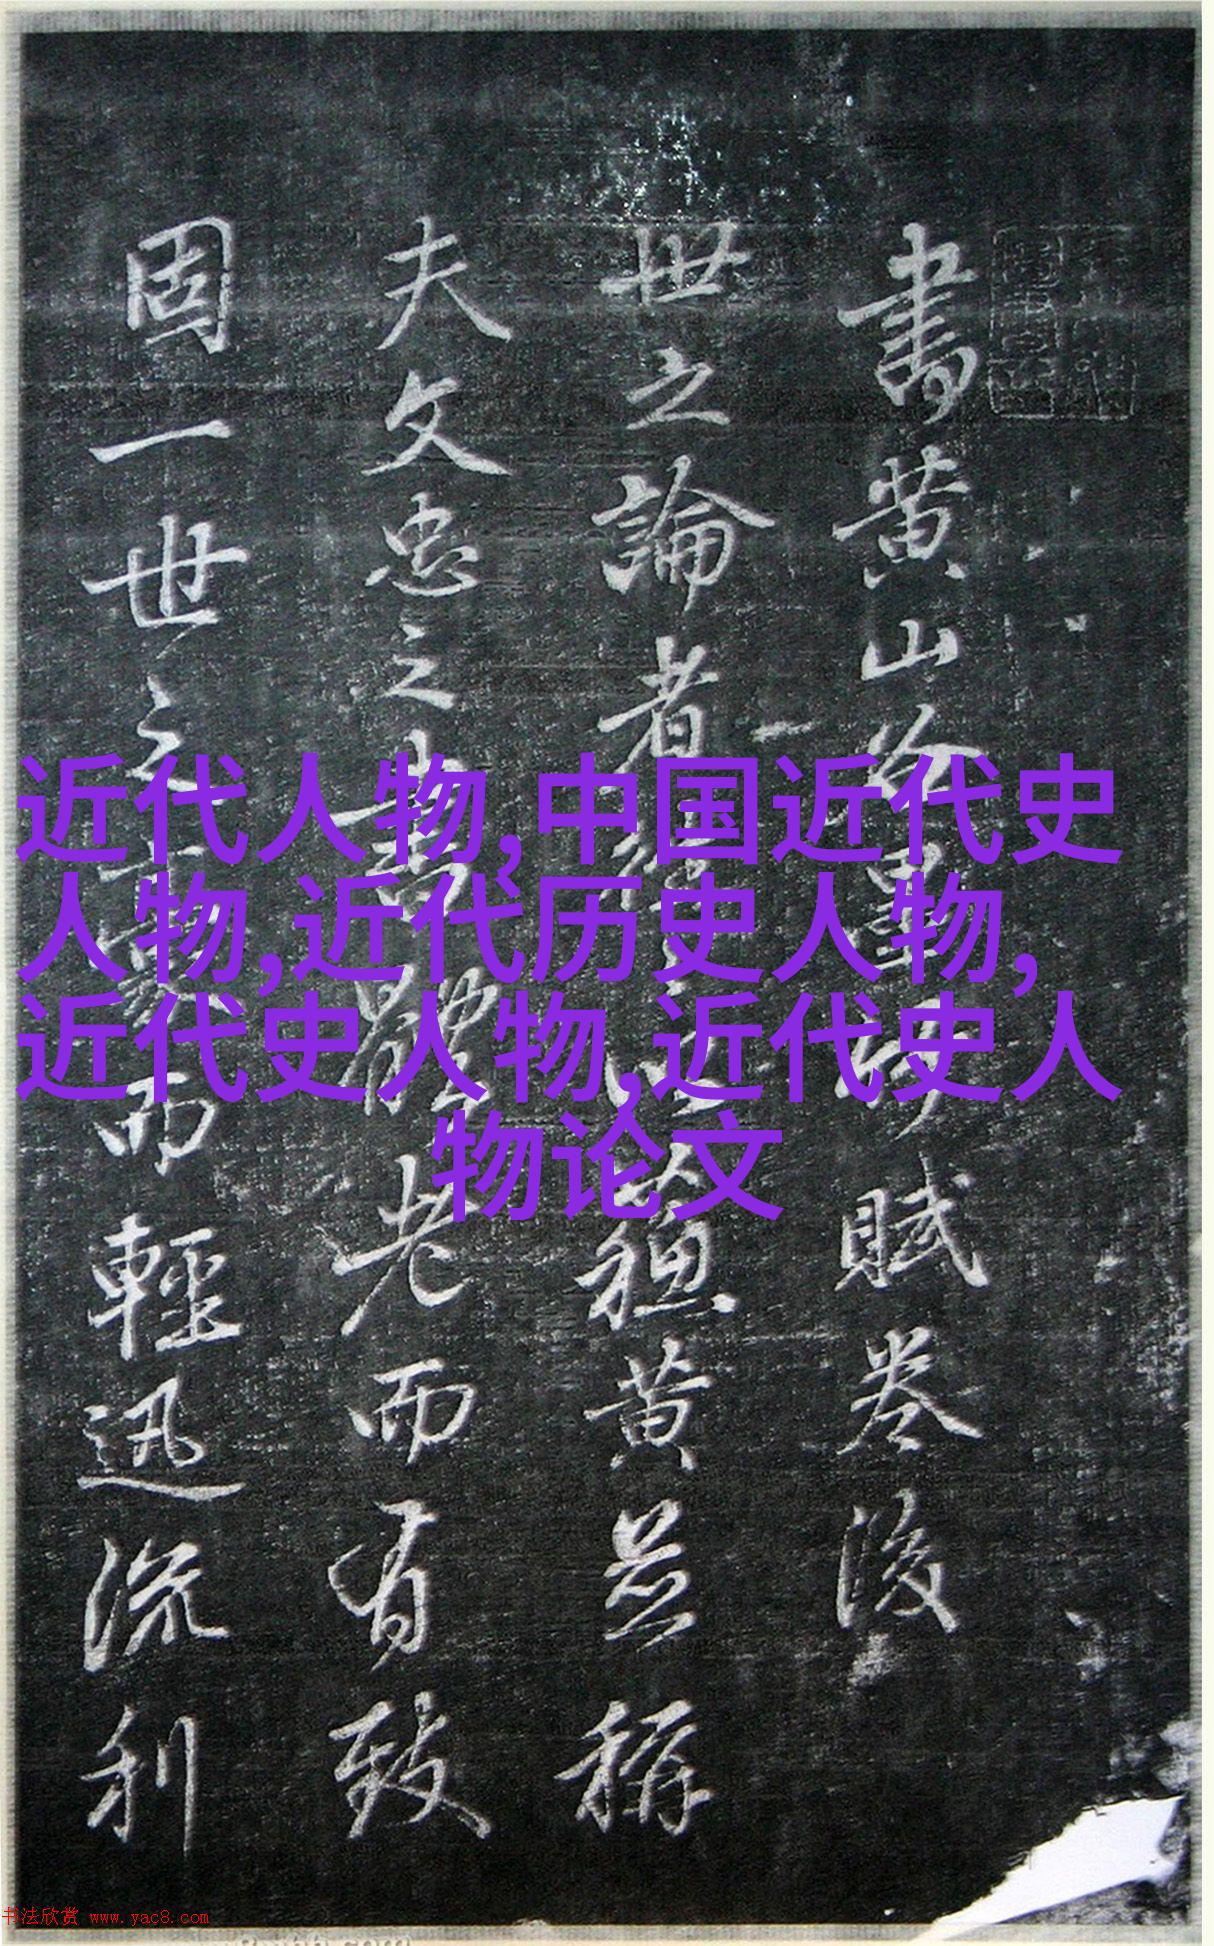 書黄山谷墨竹賦卷後
世之論者
蘓黄並稱
夫文忠之書體老而有致
固一世之
而輕迅流利
近代人物,中国近代史
人物,近代历史人物,
近代史人物,近代史人
物论文
书法欣赏 www.yac8.com